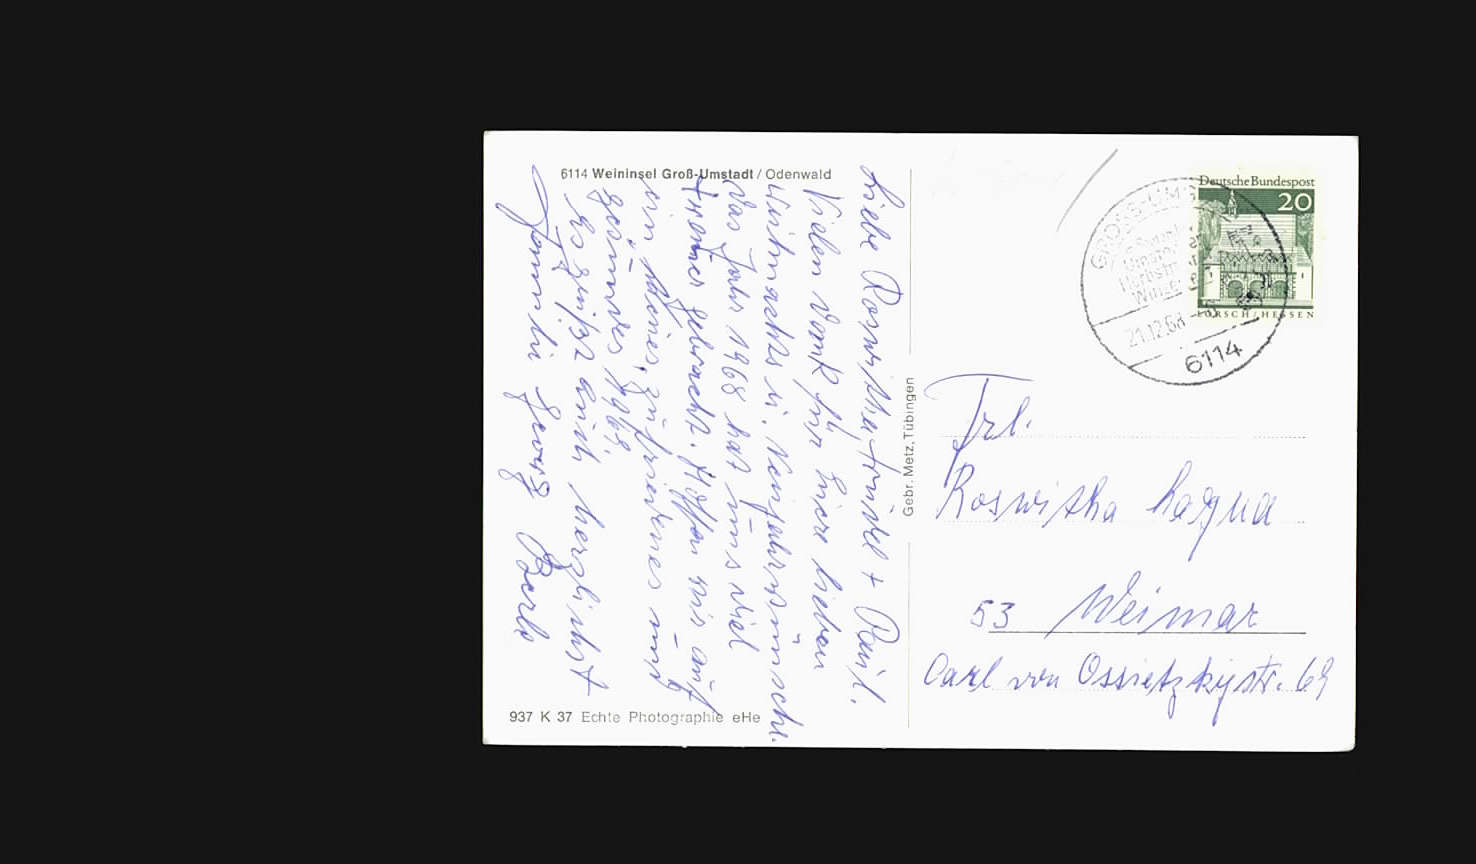 6114 Weininsel Groß-Umstadt / Odenwald
Liebe Roswitha, Trudel + Paul.
Vielen Dank für Eure lieben
Weihnachts u. Neujahrswünsche.
Das Jahr 1968 hat uns viel
Trauer gebracht. Hoffen wir auf
ein kleines, zufriedenes und
gesundes 1969.
Es grüßt Euch herzlichst
Familie Georg
937 K 37 Echte Photographie eHe
Gebr. Metz, Tübingen
Deutsche Bundespost
20
LORSCH/HESSEN
GROSS-UMS
21.12.68
6114
Frl.
Roswitha
53 Weimar
Carl von Ossietzkystr. 69